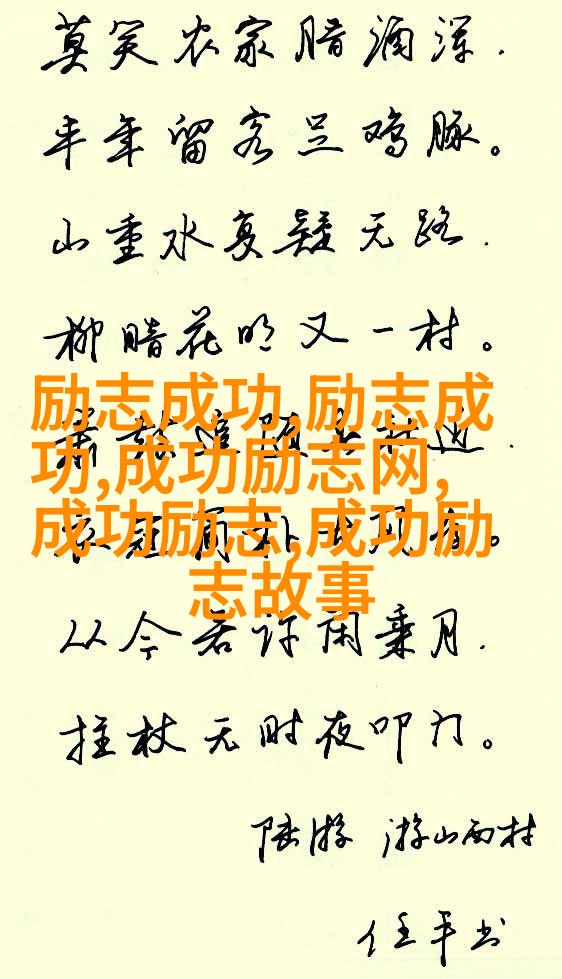 莫笑农家腊酒浑.
丰年留客足鸡豚。
山重水复疑无路.
柳暗花明又一村。
励志成功,励志成
功,成功励志网,
成功励志,成功励
志故事
从今若许闲乘月.
拄杖无时夜叩门。
陆游 游山西村
任平书